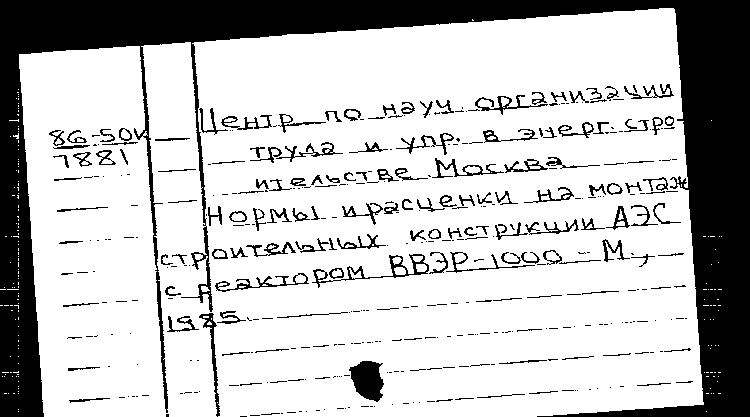 86-50К
7881
Центр по науч. организации
труда и упр. в энерг. стро-
ительстве. Москва.
Нормы и расценки на монтаж
строительных конструкции АЭС
с реактором ВВЭР-1000 - М.,
1985.